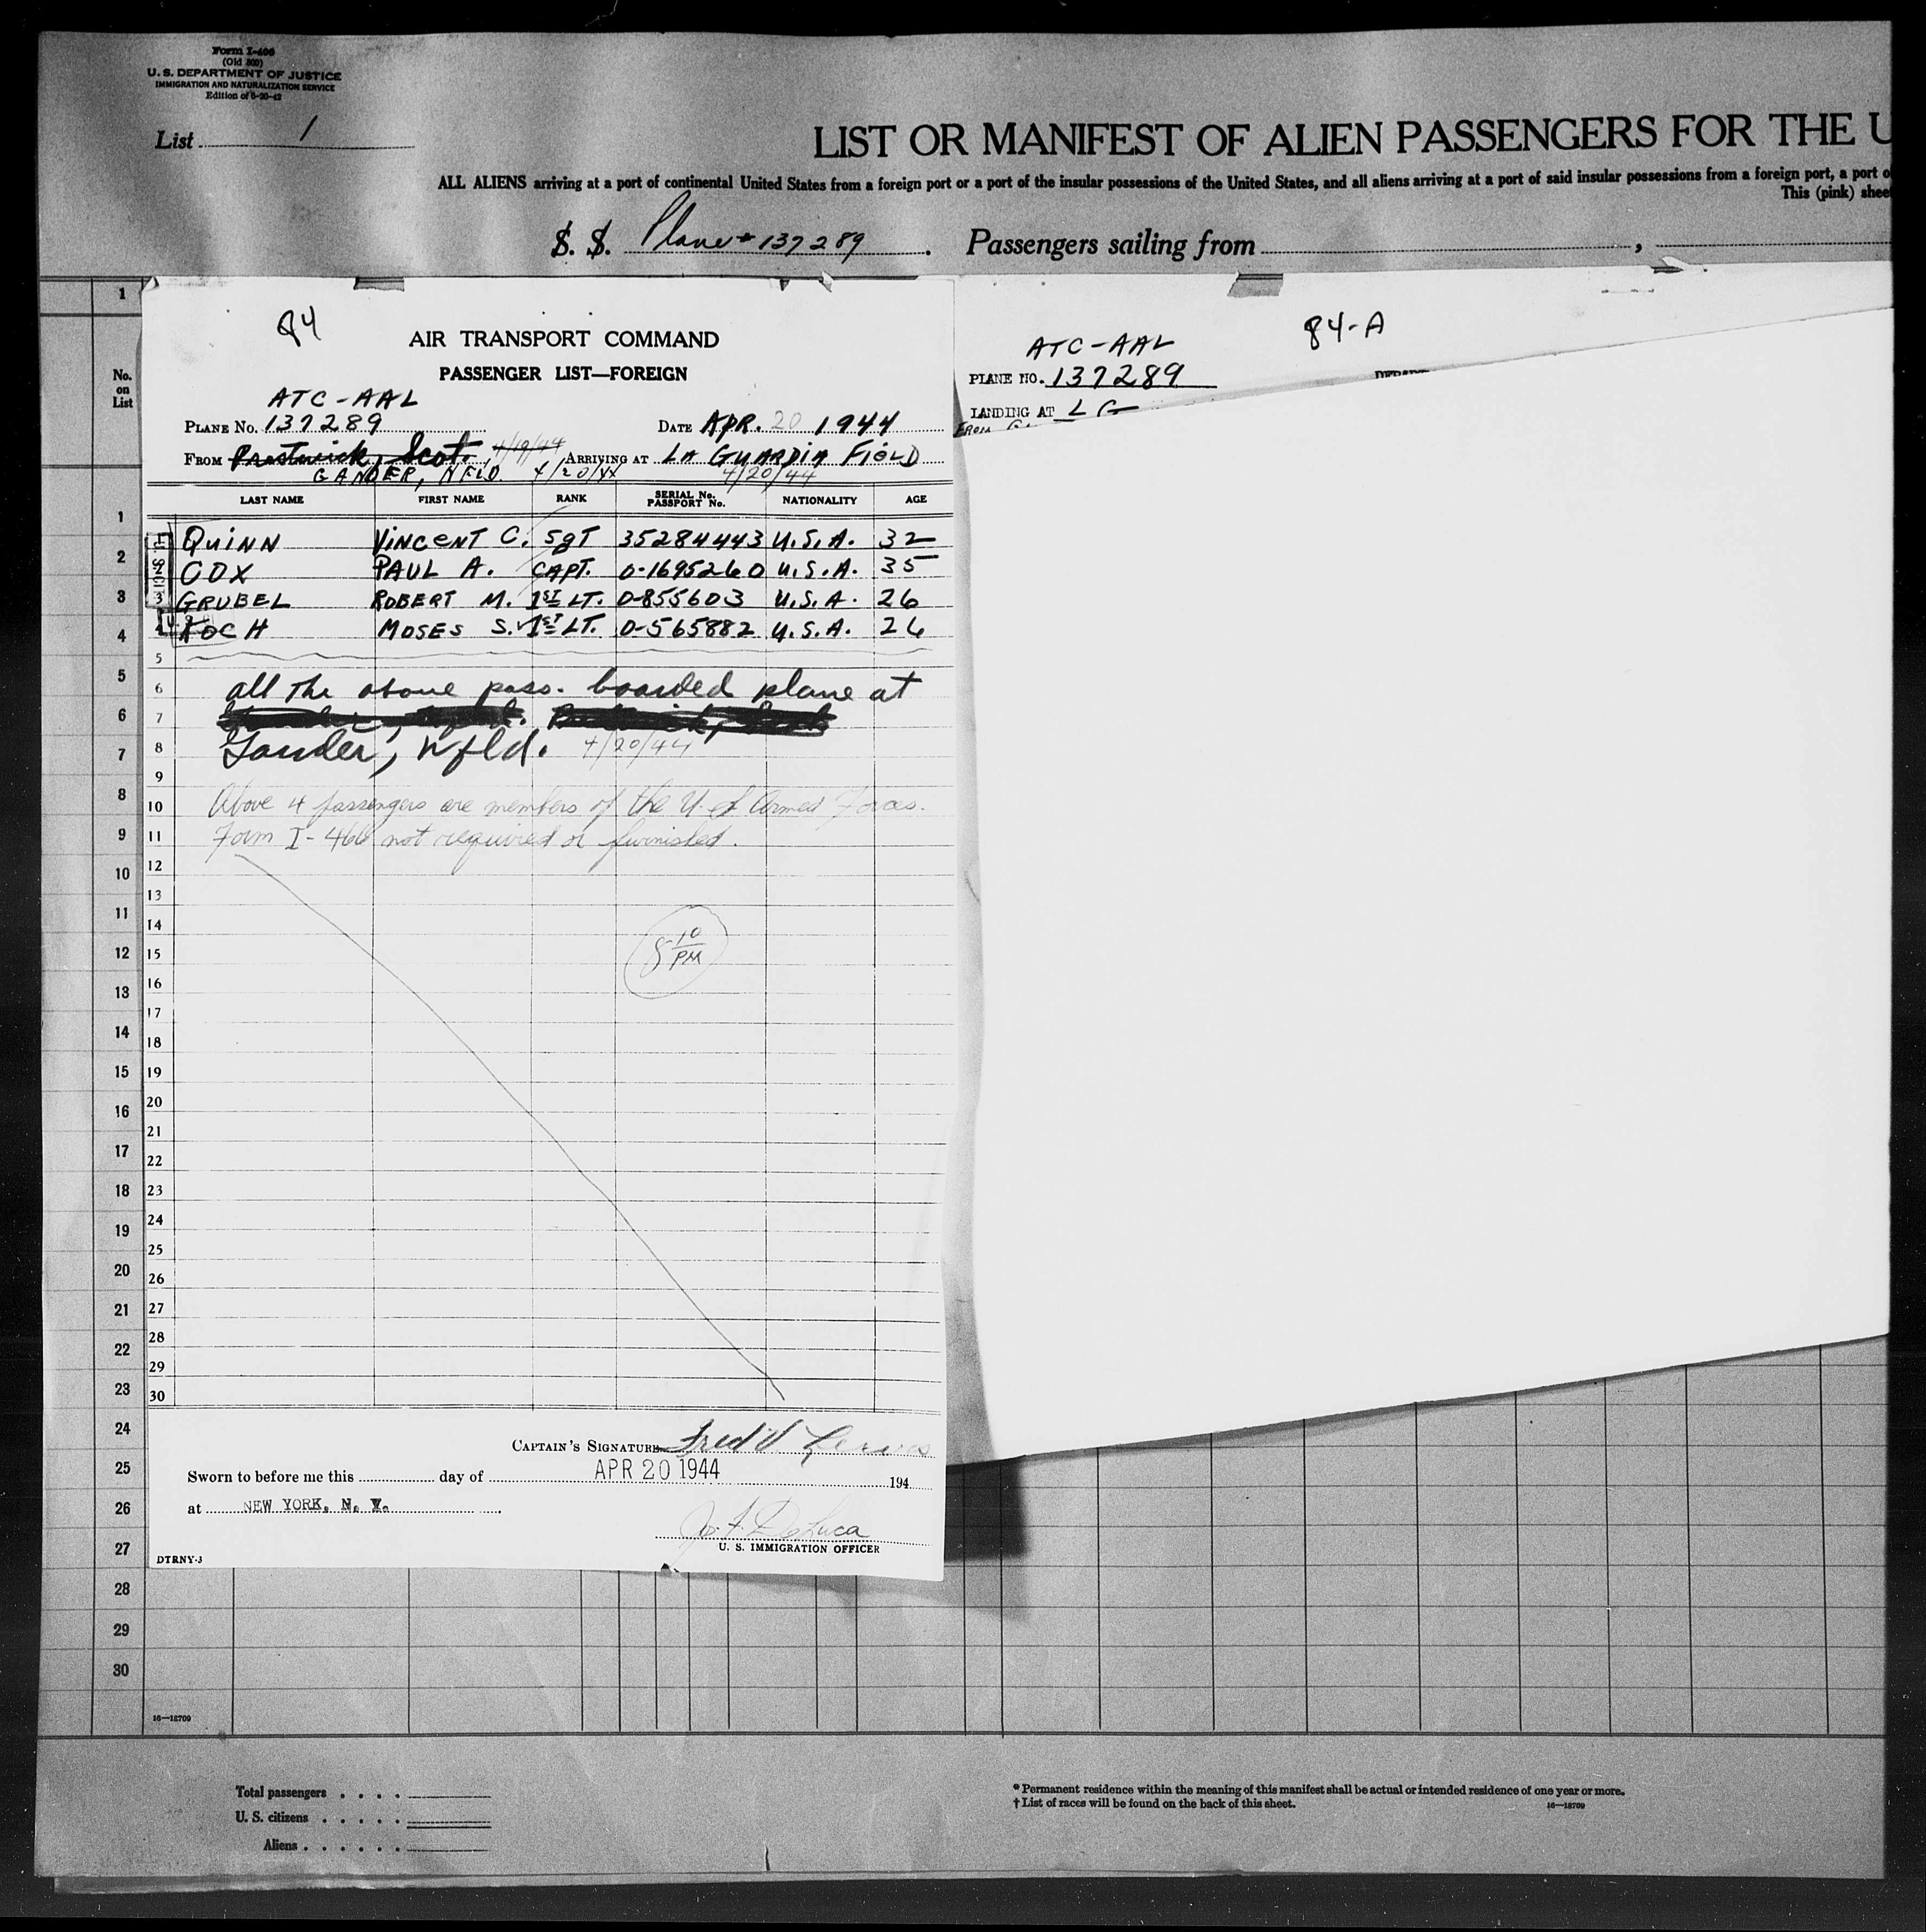 Form I-466
(Old 500)
U. S. DEPARTMENT OF JUSTICE
IMMIGRATION AND NATURALIZATION SERVICE
Edition of 6-20-42
List 1
LIST OR MANIFEST OF ALIEN PASSENGERS FOR THE U
ALL ALIENS arriving at a port of continental United States from a foreign port or a port of the insular possessions of the United States, and all aliens arriving at a port of said insular possessions from a foreign port, a port o
This (pink) shee
S. S. Plane # 137289. Passengers sailing from ,
84
AIR TRANSPORT COMMAND
PASSENGER LIST—FOREIGN
ATC-AAL
PLANE No. 137289 DATE APR. 20 1944
FROM Prestwick, Scot. 4/19/44 ARRIVING AT LA GUARDIA FIELD
GANDER, NFLD. 4/20/44 4/20/44
LAST NAME FIRST NAME RANK SERIAL No. PASSPORT No. NATIONALITY AGE
QUINN VINCENT C. SGT 35284443 U.S.A. 32
COX PAUL A. CAPT. O-1695260 U.S.A. 35
GRUBEL ROBERT M. 1ST LT. O-855603 U.S.A. 26
KOCH MOSES S. 1ST LT. O-565882 U.S.A. 26
all the above pass. boarded plane at
Gander, Nfld. 4/20/44
Above 4 passengers are members of the U. S. Armed Forces.
Form I-466 not required or furnished.
8 10 PM
CAPTAIN'S SIGNATURE Fred V.
Sworn to before me this day of APR 20 1944 194
at NEW YORK, N. Y.
Jo. F. DeLuca
U. S. IMMIGRATION OFFICER
DTRNY-3
84-A
ATC-AAL
PLANE NO. 137289
LANDING AT L G
FROM
No.
on
List
1
1
2
3
4
5
6
7
8
9
10
11
12
13
14
15
16
17
18
19
20
21
22
23
24
25
26
27
28
29
30
5
6
7
8
9
10
11
12
13
14
15
16
17
18
19
20
21
22
23
24
25
26
27
28
29
30
16—18709
Total passengers
U. S. citizens
Aliens
* Permanent residence within the meaning of this manifest shall be actual or intended residence of one year or more.
† List of races will be found on the back of this sheet.
16—18709